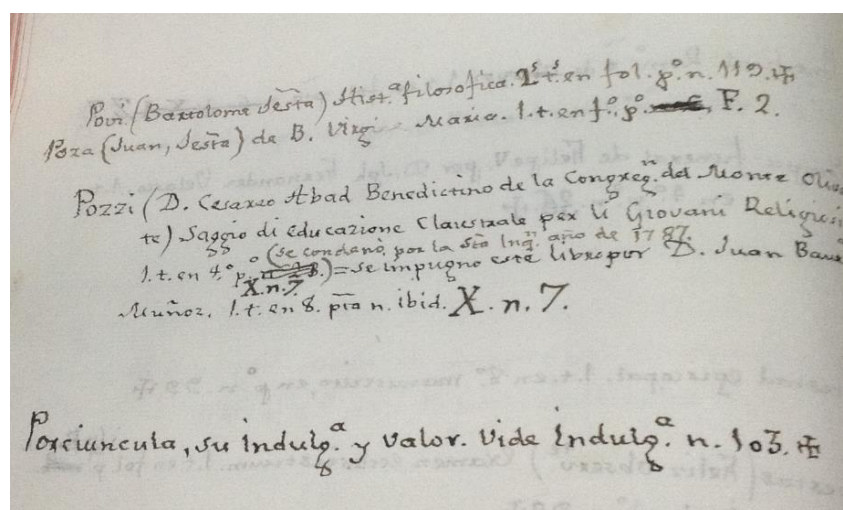 Povi (Bartolome Jesta) Hist.ª filosofica. 2 t.s en fol. p.º n. 119. ✠
Poza (Juan, Jesta) de B. Virgi Maria. 1. t. en f.º p.º F. 2.
Pozzi (D. Cesareo Abad Benedictino de la Congreg.n del Monte Olive
te) Saggio di educazione Claustrale per li Giovani Religiosi
(se condenó por la Sta Inq.n año de 1787.
1. t. en 4.º p.º X. n. 7.) = se impugno este libro por D. Juan Baut
Muñoz. 1. t. en 8. pta n. ibid. X. n. 7.
Porciuncula, su indulg.ª y valor. Vide indulg.ª n. 103. ✠